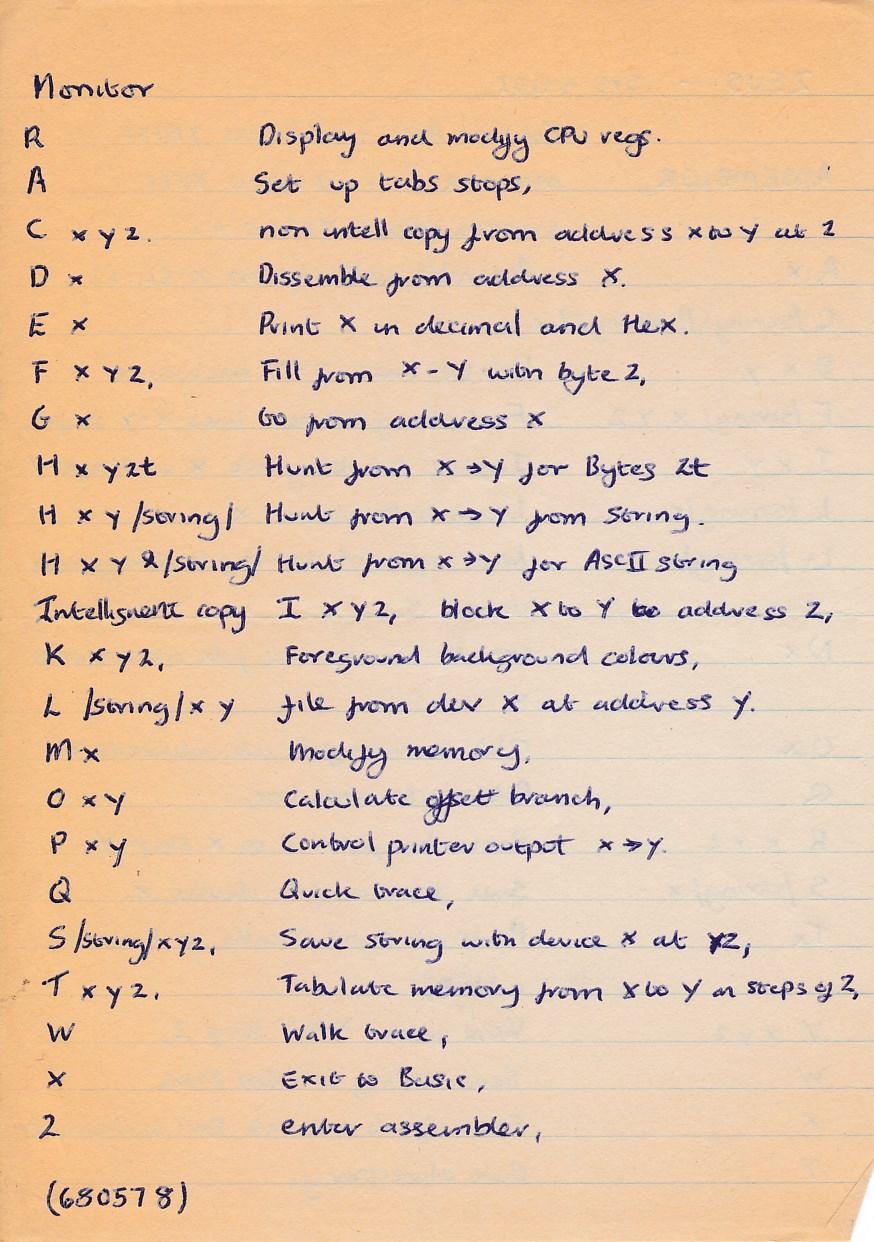 Monitor
R Display and modify CPU regs.
A Set up tabs stops,
C x y z. non intell copy from address x to y at z
D x Dissemble from address X.
E x Print X in decimal and Hex.
F x y z, Fill from X - Y with byte z,
G x Go from address X
H x y z t Hunt from X → Y for Bytes zt
H x y /string/ Hunt from x → Y from String.
H x y & /string/ Hunt from x → Y for AscII string
Intellignent copy I x y z, block X to Y to address z,
K x y z, Foreground background colours,
L /string/ x y file from dev X at address Y.
M x Modify memory,
O x y Calculate offset branch,
P x y Control printer output x → y.
Q Quick trace,
S /string/ x y z, Save string with device X at YZ,
T x y z. Tabulate memory from X to Y in steps of Z,
W Walk trace,
X Exit to Basic,
Z enter assembler,
(680578)